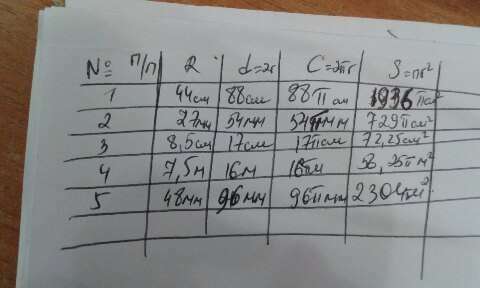 № п/п R d=2r C=2πr S=πr²
1 44см 88см 88π см 1936πсм²
2 27мм 54мм 54πмм 729πсм²
3 8,5см 17см 17πсм 72,25см²
4 7,5м 16м 16πм 56,25πм²
5 48мм 96мм 96πмм